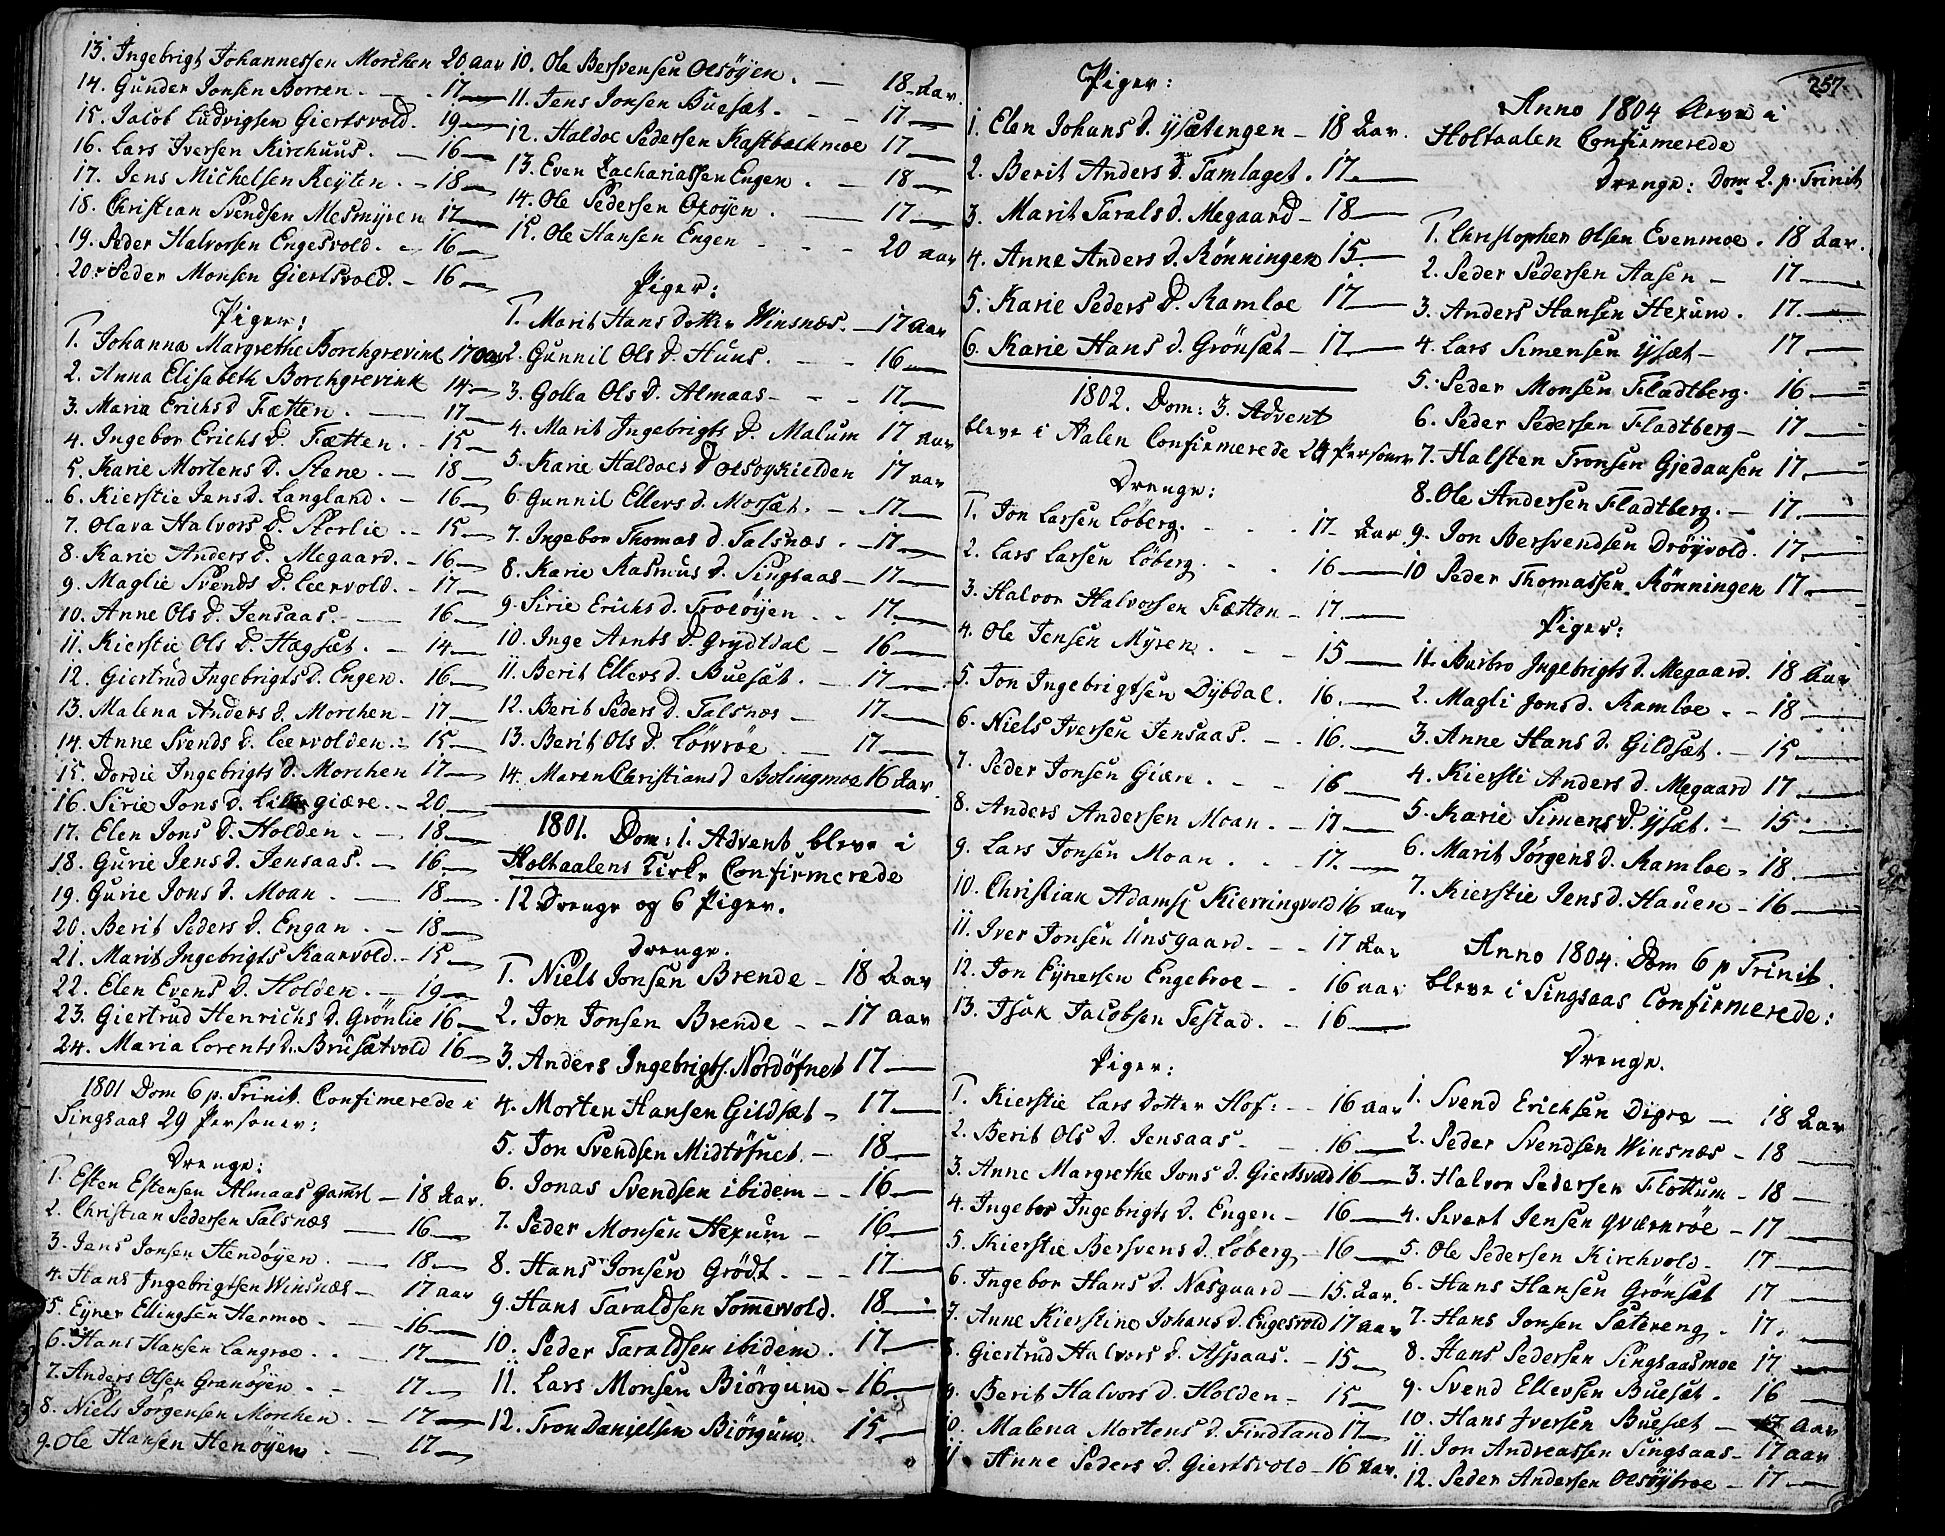 13. Ingebrigt Johannessen Morchen 20 aar
14. Gunder Jonsen Borren. 17
15. Jacob Ludvigsen Giertsvold. 19
16. Lars Iversen Kirchuus. 16
17. Jens Michelsen Reyten. 18
18. Christian Svendsen Mesmyren 17
19. Peder Halvorsen Engesvold. 16
20. Peder Monsen Giertsvold. 16
Piger:
1. Johanna Margrethe Borchgrevink 17 aar
2. Anna Elisabeth Borchgrevink 14
3. Maria Erichs d Fætten. 17
4. Ingebor Erichs d. Fætten. 15
5. Karie Mortens d. Stene. 18
6. Kierstie Jens d. Langland. 16
7. Olava Halvors d. Storlie. 15
8. Karie Anders d. Megaard. 16
9. Maglie Svends d. Leervold. 17
10. Anne Ols d. Jensaas. 16
11. Kierstie Ols d. Hagset. 14
12. Giertrud Ingebrigts d. Engen. 16
13. Malena Anders d. Morchen 17
14. Anne Svends d. Leervolden. 15
15. Dordie Ingebrigts d. Morchen 17
16. Sirie Jons d. Lillegiære. 20
17. Elen Jons d. Holden. 18
18. Gurie Jens d. Jensaas. 16
19. Gurie Jons d. Moan. 18
20. Berit Peders d. Engan. 18
21. Marit Ingebrigts Kaarvold. 15
22. Elen Evens d. Holden. 19
23. Giertrud Henrichs d. Grönlie 16
24. Maria Lorents d. Brusætvold 16
1801 Dom 6 p. Trinit. Confimerede i
Singsaas 29 Personer:
Drenge:
1. Esten Estensen Almaas gaml 18 Aar.
2. Christian Pedersen Talsnæs 16
3. Jens Jonsen Hendöyen. 18
4. Hans Ingebrigtsen Winsnæs 17 aar
5. Eyner Ellingsen Hermoe 16
6. Hans Hansen Langroe. 17
7. Anders Olsen Granöyen. 17
8. Niels Jörgensen Morchen. 17
9. Ole Hansen Henöyen. 17
10. Ole Bersvensen Oesöyen. 18 Aar.
11. Jens Jonsen Buesæt. 17
12. Haldoe Pedersen Kastbachmoe 17
13. Even Zachariassen Engen. 18
14. Ole Pedersen Oxöyen. 17
15. Ole Hansen Engen 20 aar
Piger:
1. Marit Hans dotter Winsnæs. 17 aar
2. Gunnil Ols d. Huus. 16
3. Golla Ols d. Almaas 17
4. Marit Ingebrigts d. Malum 17 aar
5. Karie Haldoes d Oesoykielden 17 aar
6. Gunnil Ellevs d. Morsæt. 17
7. Ingebor Thomas d. Talsnæs. 17
8. Karie Rasmus d. Singsaas 17
9. Sirie Erichs d. Troeöyen. 17
10. Inge Arnts d. Grydtdal 16
11. Berit Ellevs d. Buesæt. 17
12. Berit Peders d. Talsnæs 17
13. Berit Ols d. Löviöe 17
14. Maren Christians d Bolingmoe 16 Aar
1801. Dom: 1. Advent bleve i
Holtaalens Kirke Confirmerede
12 Drenge og 6 Piger.
Drenge.
1. Niels Jonsen Brende 18 Aar
2. Jon Jonsen Brende 17 aar
3. Anders Ingebrigts. Nordöfnet 17
4. Morten Hansen Gildsæt 17
5. Jon Svendsen Midtöfnet. 18
6. Jonas Svendsen ibidem 16
7. Peder Monsen Hexum 16
8. Hans Jonsen Grödt. 17
9. Hans Taraldsen Tomervold. 18
10. Peder Taraldsen ibidem. 17
11. Lars Monsen Biörgum 16
12. Tron Danjelsen Biörgum. 15
Piger:
1. Elen Johans d. Ysætengen 18 Aar.
2. Berit Anders d. Tamlaget. 17.
3. Marit Tarals d. Megaard 18
4. Anne Anders d. Rönningen 15.
5. Karie Peders d. Ramloe 17
6. Karie Hans d. Grönsæt 17.
1802. Dom: 3. Advent
bleve i Aalen Confirmerede 24 Personer
Drenge:
1. Jon Larsen Löberg. 17 Aar
2. Lars Larsen Löberg. 16
3. Halvor Halvorsen Fætten 17
4. Ole Jensen Myren. 15
5. Jon Ingebrigtsen Dybdal. 16.
6. Niels Iversen Jensaas. 16.
7. Peder Jonsen Giære. 16
8. Anders Andersen Moan. 17
9. Lars Jonsen Moan. 17.
10. Christian Adams. Kierringvold 16 aar
11. Iver Jonsen Unsgaard. 17 Aar
12. Jon Eynersen Engebroe 16 aar
13. Isak Jacobsen Testad. 16
Piger:
1. Kierstie Lars dotter Hof: 16 aar
2. Berit Ols d. Jensaas 16
3. Anne Margrethe Jons d. Giertsvold 16
4. Ingebor Ingebrigts d. Engen 16
5. Kierstie Bersvens d. Löberg 16
6. Ingebor Hans d. Næsgaard 15. Aar.
7. Anne Kierstine Johans d. Engesvold 17 aar
8. Giertrud Halvors d. Aspaas. 15
9. Berit Halvors d. Holden 15
10. Malena Mortens d. Findland 17
11. Anne Peders d. Giertsvold 16 Aar.
257.
Anno 1804 bleve i
Holtaalen Confirmerede
Drenge: Dom 2. p. Trinit
1. Christopher Olsen Evenmoe. 18 Aar.
2. Peder Pedersen Aasen 17
3. Anders Hansen Hexum. 17.
4. Lars Simensen Ysæt 17
5. Peder Monsen Fladtberg. 16
6. Peder Pedersen Fladtberg 17
7. Halsten Tronsen Gjedausen 17
8. Ole Andersen Fladtberg. 17.
9. Jon Bersvendsen Dröyvold. 17.
10 Peder Thomassen Rönningen 17
Piger:
1. Barbro Ingebrigts d. Megaard. 18 Aar
2. Magli Jons d. Ramloe. 18
3. Anne Hans d. Gildsæt. 15
4. Kiersti Anders d. Megaard 17
5. Karie Simens d. Ysæt. 15
6. Marit Jörgens d. Ramloe 18.
7. Kierstie Jens d. Hauen 16
Anno 1804. Dom 6 p Trinit.
bleve i Singsaas Confirmerede:
Drenge.
1. Svend Erichsen Digre 18 Aar
2. Peder Svendsen Winsnæs 18
3. Halvor Pedersen Flottum 18
4. Sivert Jensen Qværnröe 17
5. Ole Pedersen Kirchvold 17
6. Hans Hansen Grönsæt 17
7. Hans Jonsen Sætereng. 17.
8. Hans Pedersen Singsaasmoe 17
9. Svend Ellevsen Buesæt. 16
10. Hans Iversen Buesæt 17 Aar
11. Jon Andreassen Singsaas 17 aar
12. Peder Andersen Oesöybroe 17